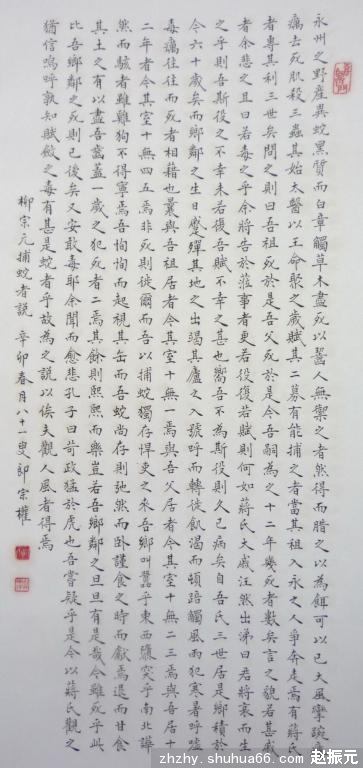 永州之野產異蛇黑質而白章觸草木盡死以齧人無禦之者然得而腊之以為餌可以已大風攣踠瘻
癘去死肌殺三蟲其始太醫以王命聚之歲賦其二募有能捕之者當其租入永之人爭奔走焉有蔣氏
者專其利三世矣問之則曰吾祖死於是吾父死於是今吾嗣為之十二年幾死者數矣言之貌若甚慼
者余悲之且曰若毒之乎余將告於蒞事者更若役復若賦則何如蔣氏大戚汪然出涕曰君將哀而生
之乎則吾斯役之不幸未若復吾賦不幸之甚也嚮吾不為斯役則久已病矣自吾氏三世居是鄉積於
今六十歲矣而鄉鄰之生日蹙殫其地之出竭其廬之入號呼而轉徙飢渴而頓踣觸風雨犯寒暑呼噓
毒癘往往而死者相藉也曩與吾祖居者今其室十無一焉與吾父居者今其室十無二三焉與吾居十
二年者今其室十無四五焉非死則徙爾而吾以捕蛇獨存悍吏之來吾鄉叫囂乎東西隳突乎南北譁
然而駭者雖雞狗不得寧焉吾恂恂而起視其缶而吾蛇尚存則弛然而臥謹食之時而獻焉退而甘食
其土之有以盡吾齒蓋一歲之犯死者二焉其餘則熙熙而樂豈若吾鄉鄰之旦旦有是哉今雖死乎此
比吾鄉鄰之死則已後矣又安敢毒耶余聞而愈悲孔子曰苛政猛於虎也吾嘗疑乎是今以蔣氏觀之
猶信嗚呼孰知賦斂之毒有甚是蛇者乎故為之說以俟夫觀人風者得焉
柳宗元捕蛇者說 辛卯春月八十一叟郎宗權
zhzhy.shuhua.so 赵振元.com